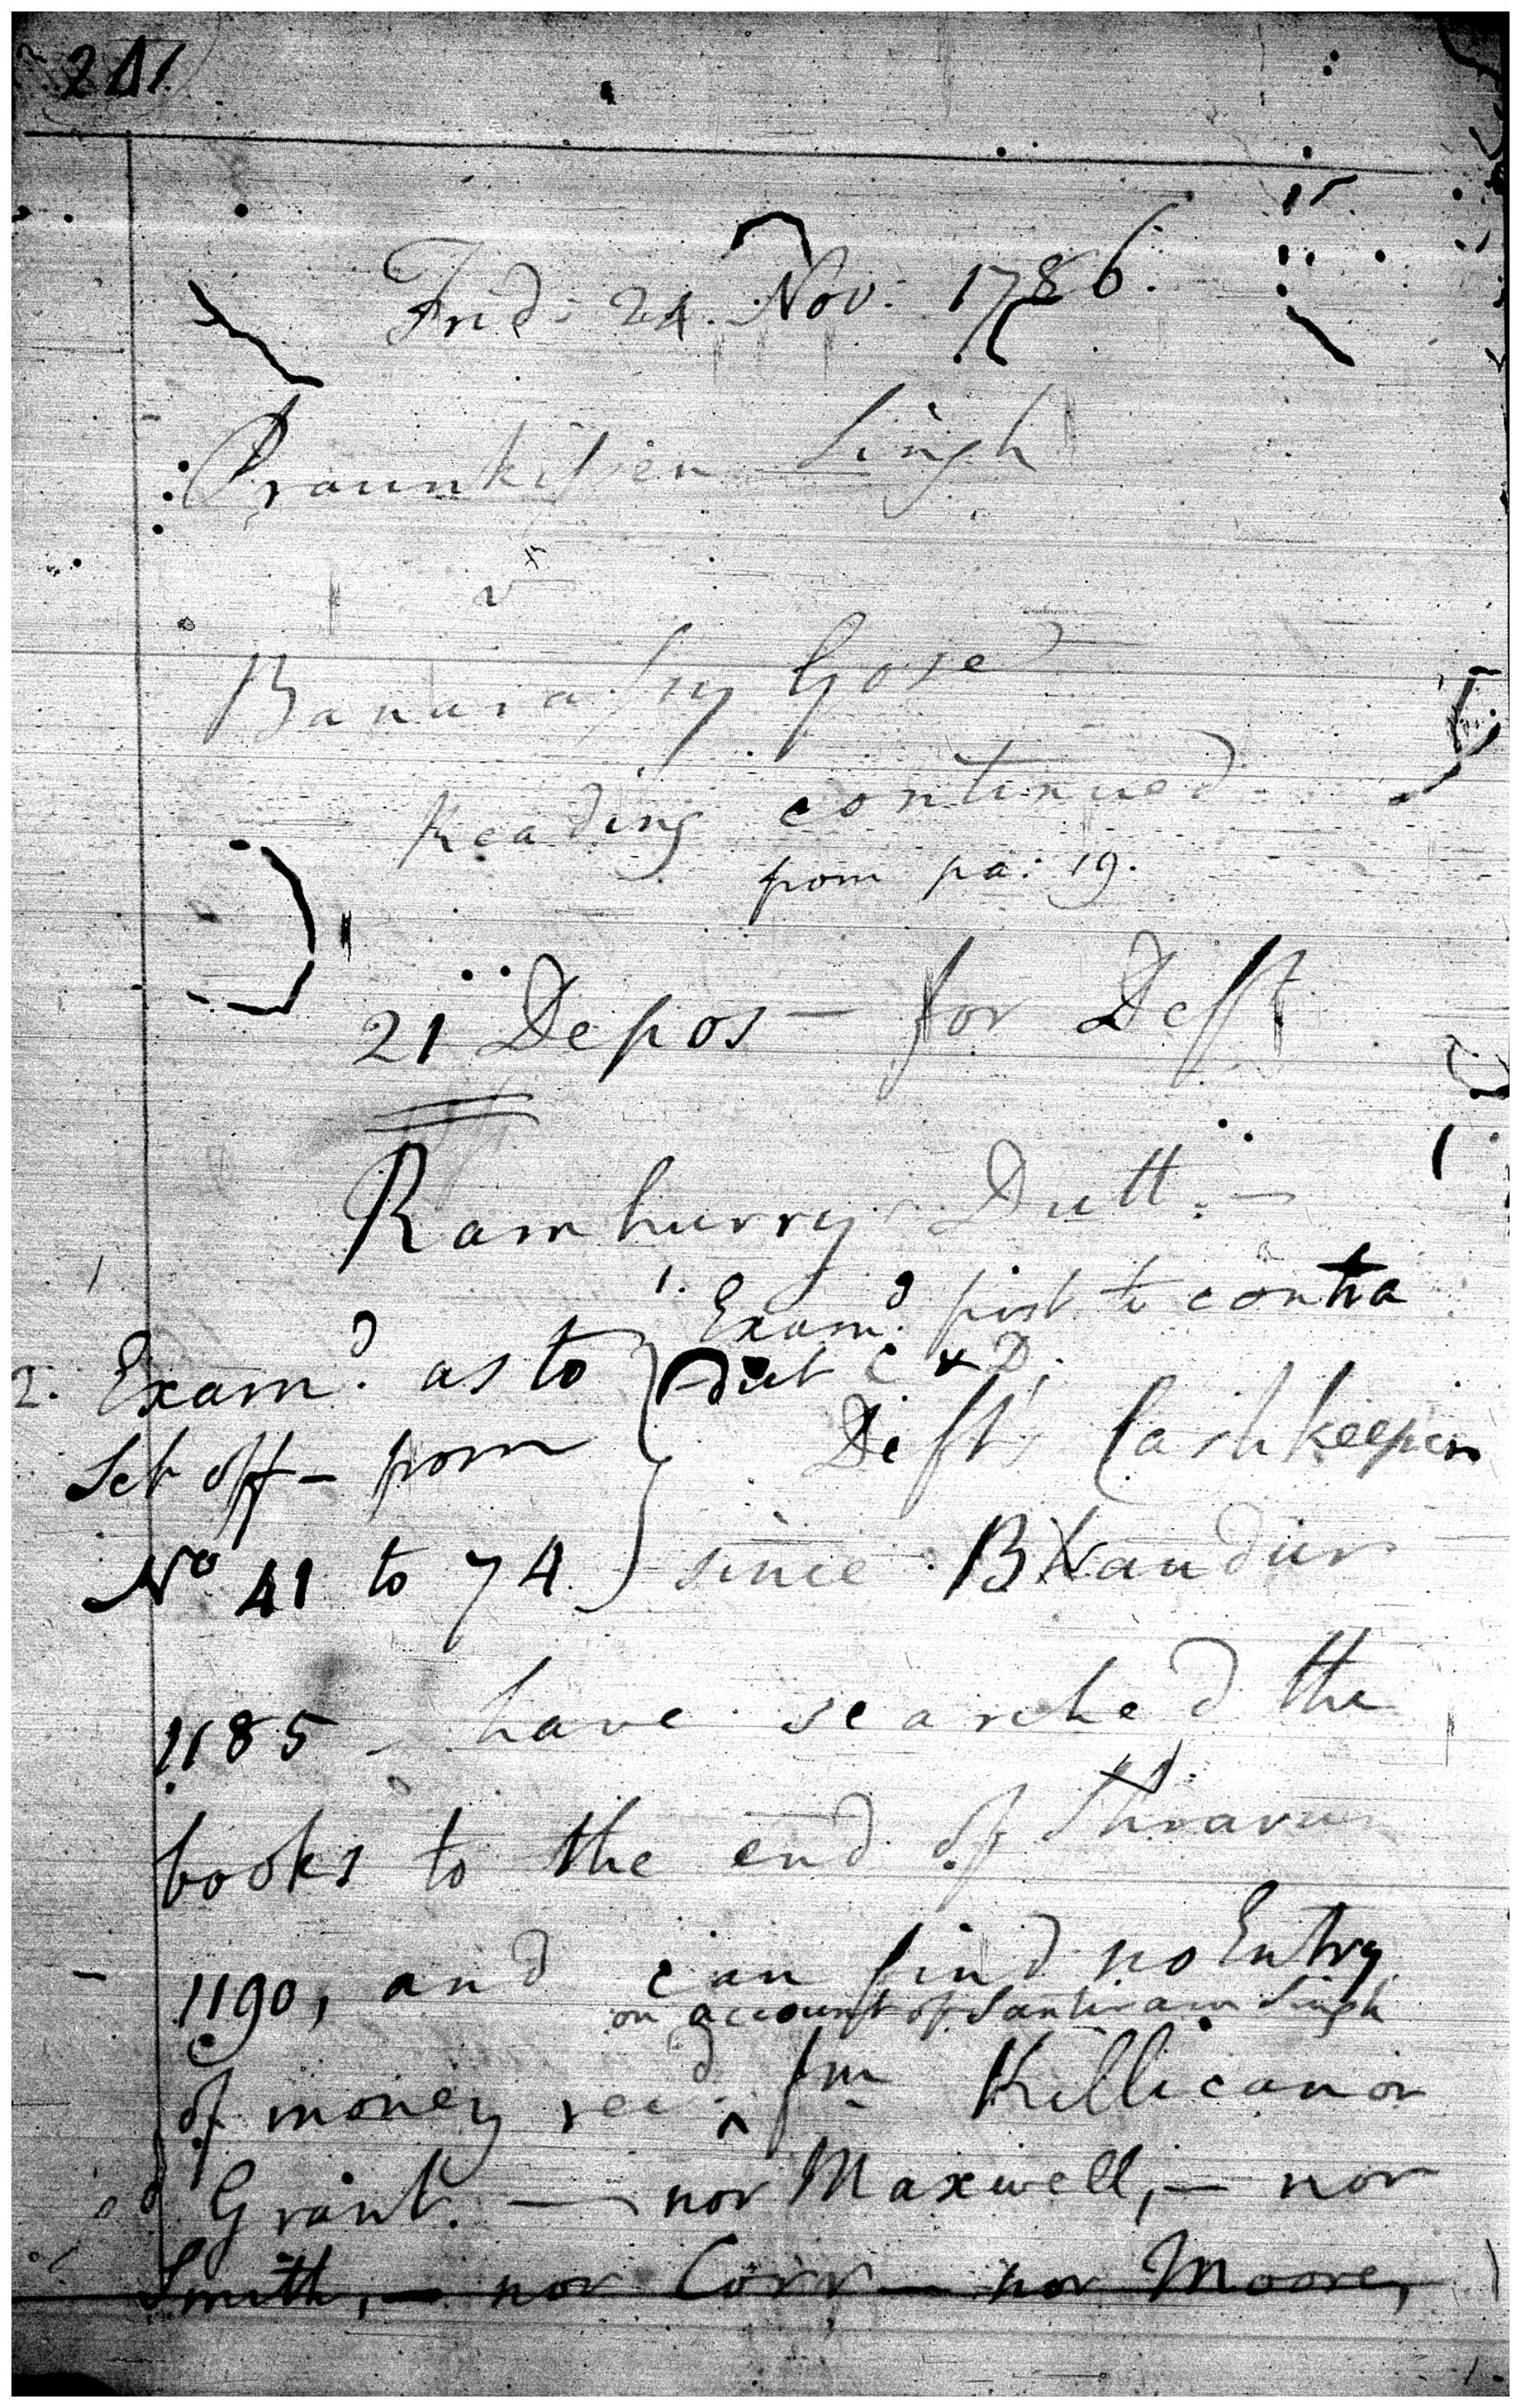 241
Frid: 24. Nov: 1786.
Praunkissen Singh
v
Banarassy Gose
Reading continued
from pa: 19.
21 Depos — for Deft
Ramhurry Dutt. —
1. Exam.d first to contra
2. Exam.d as to
C & D.
Set off — from
Deft's Cashkeeper
No 41 to 74
since Bhaudur
1185 — have searched the
books to the end of Shravun
1190, and can find no Entry
on account of Santiram Singh
of money rec.d fm Killican or
Grant. — nor Maxwell, — nor
Smith, — nor Corr — nor Moore,